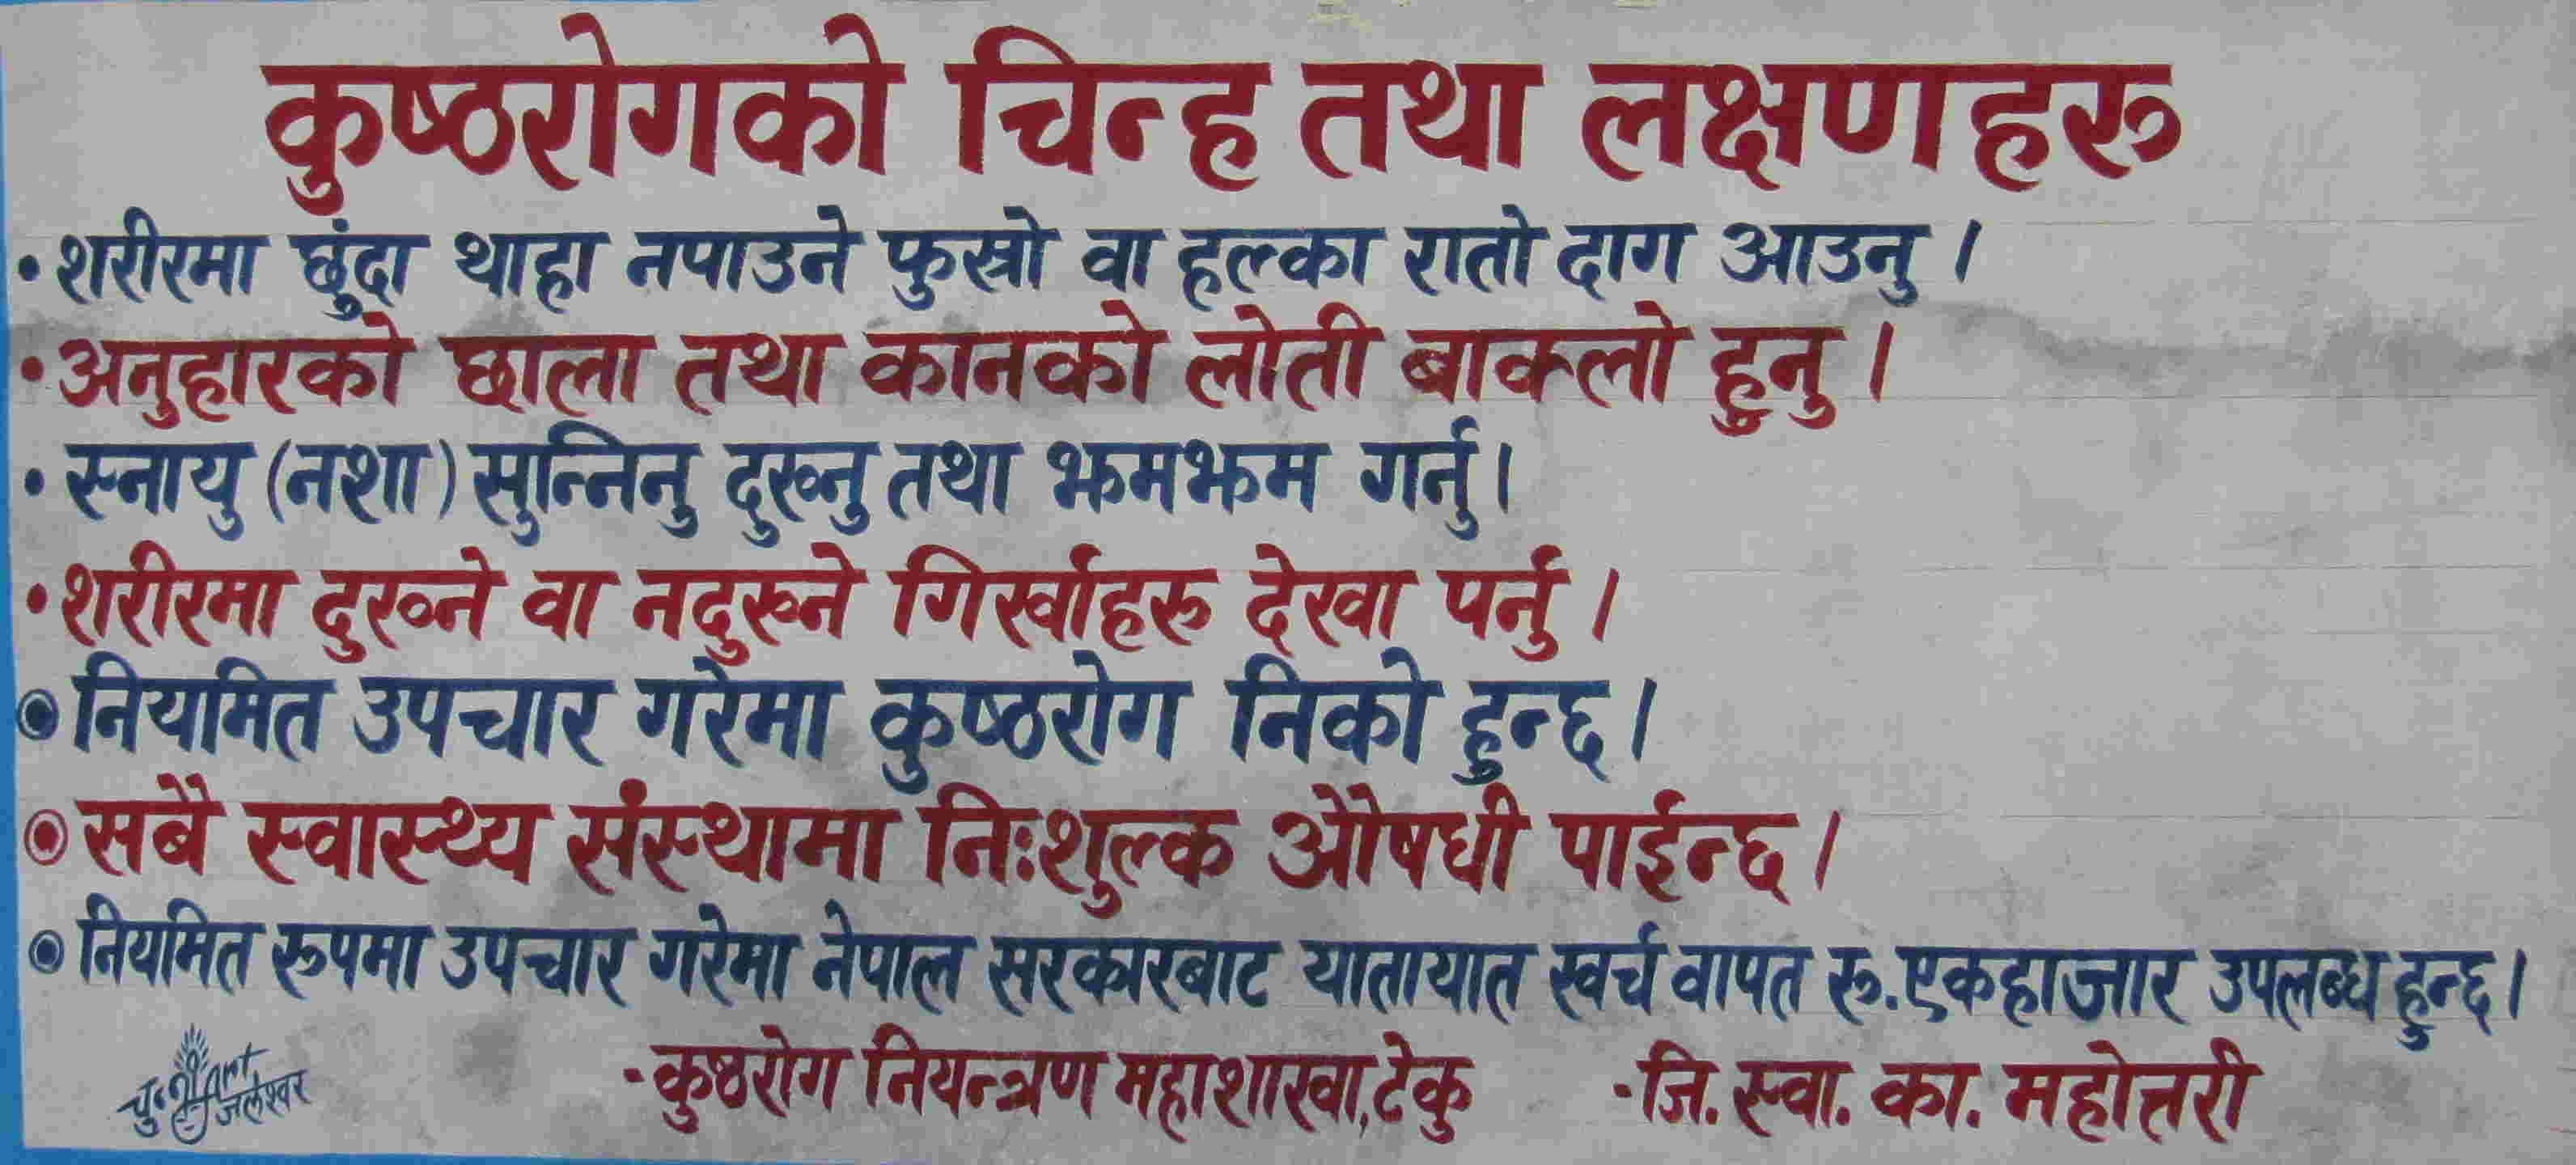 कुष्ठरोगको चिन्ह तथा लक्षणहरु
• शरीरमा छुंदा थाहा नपाउने फुस्रो वा हल्का रातो दाग आउनु ।
• अनुहारको छाला तथा कानको लोती बाक्लो हुनु ।
• स्नायु (नशा) सुन्निनु दुख्नु तथा झमझम गर्नु।
• शरीरमा दुख्ने वा नदुख्ने गिर्खाहरु देखा पर्नु ।
⦿ नियमित उपचार गरेमा कुष्ठरोग निको हुन्छ।
⦿ सबै स्वास्थ्य संस्थामा निःशुल्क औषधी पाईन्छ।
⦿ नियमित रूपमा उपचार गरेमा नेपाल सरकारबाट यातायात खर्च वापत रू.एकहाजार उपलब्ध हुन्छ।
- कुष्ठरोग नियन्त्रण महाशाखा,टेकु - जि. स्वा. का. महोत्तरी
Art
जलेश्वर